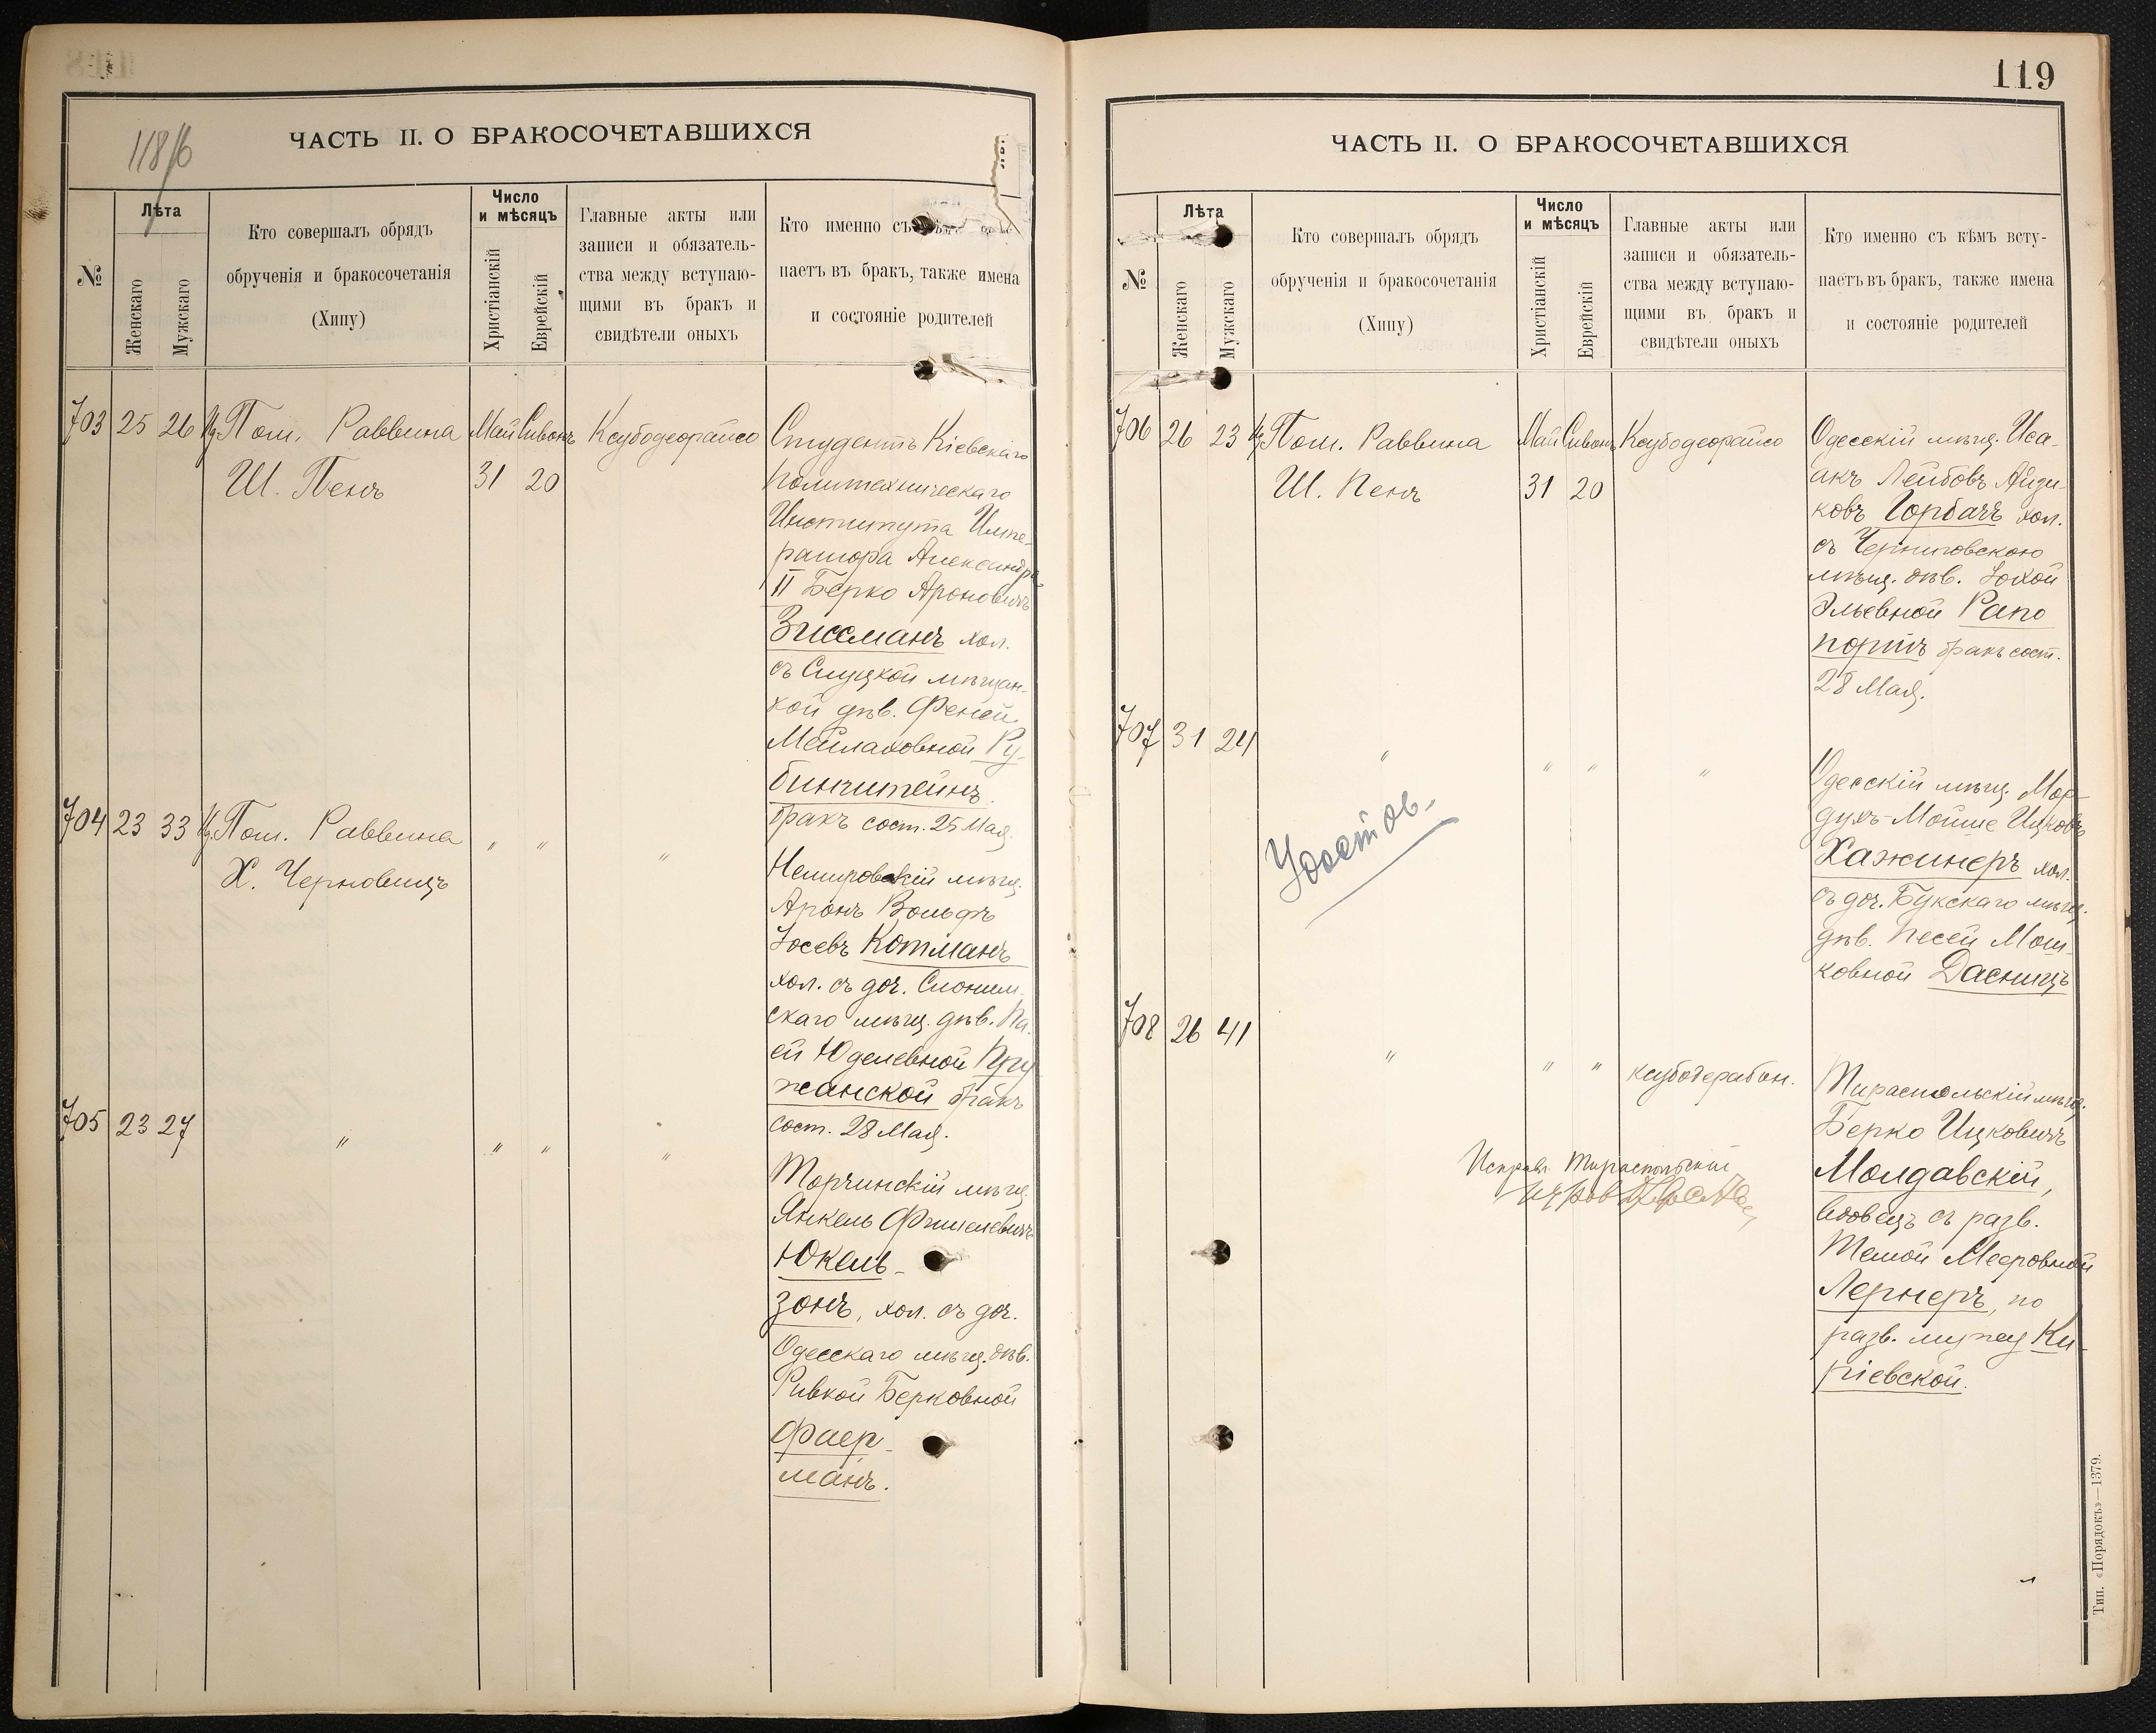 118/б
ЧАСТЬ II. О БРАКОСОЧЕТАВШИХСЯ
№
Лѣта
Женскаго
Мужскаго
Кто совершалъ обрядъ
обрученія и бракосочетанія
(Хипу)
Число
и мѣсяцъ
Христіанскій
Еврейскій
Главные акты или
записи и обязатель-
ства между вступаю-
щими въ бракъ и
свидѣтели оныхъ
Кто именно съ
паетъ въ бракъ, также имена
и состояніе родителей
703 25 26 Пом. Раввина Май Сивонъ Ксубодеорайсо
Ш. Пенъ 31 20
Студентъ Кіевскаго
Политехническаго
Института Импе-
ратора Александра
II Берко Ароновичъ
Зиссманъ хол.
съ Слуцкой мѣщан-
кой дѣв. Феней
Мейлаховной Ру-
бинштейнъ.
бракъ сост. 25 Мая.
704 23 33 Пом. Раввина " " "
Х. Черновицъ
Немировскій мѣщ.
Аронъ Вольфъ
Іосевъ Котманъ
хол. съ доч. Слоним-
скаго мѣщ. дѣв. Ха-
ей Юделевной Пру
жанской бракъ
сост. 28 Мая.
705 23 27 " " " "
Торчинскій мѣщ.
Янкель Фишелевичъ
Юкель-
зонъ, хол. съ доч.
Одесскаго мѣщ. дѣв.
Ривкой Берковной
Фаер-
манъ.
119
ЧАСТЬ II. О БРАКОСОЧЕТАВШИХСЯ
№
Лѣта
Женскаго
Мужскаго
Кто совершалъ обрядъ
обрученія и бракосочетанія
(Хипу)
Число
и мѣсяцъ
Христіанскій
Еврейскій
Главные акты или
записи и обязатель-
ства между вступаю-
щими въ бракъ и
свидѣтели оныхъ
Кто именно съ кѣмъ всту-
паетъ въ бракъ, также имена
и состояніе родителей
706 26 23 Пом. Раввина Май Сивонъ Ксубодеорайсо
Ш. Пенъ 31 20
Одесскій мѣщ. Иса-
акъ Лейбовъ Айзи-
ковъ Горбачъ хол.
съ Черниговскою
мѣщ. дѣв. Іохой
Эльевной Рапо
портъ бракъ сост.
28 Мая.
707 31 24 " " " "
Одесскій мѣщ. Мор-
духъ-Мойше Ицковъ
Хажинеръ хол.
съ доч. Букскаго мѣщ.
дѣв. Песей Мош-
ковной Дасницъ
Удостов.
708 26 41 " " " ксубодерабон.
Тираспольскій мѣщ.
Берко Ицковичъ
Молдавскій,
вдовецъ съ разв.
Темой Мееровной
Лернеръ, по
разв. мужу Ки-
ріевской.
Исправл. Тираспольскій
Тип. «Порядокъ»—1379.